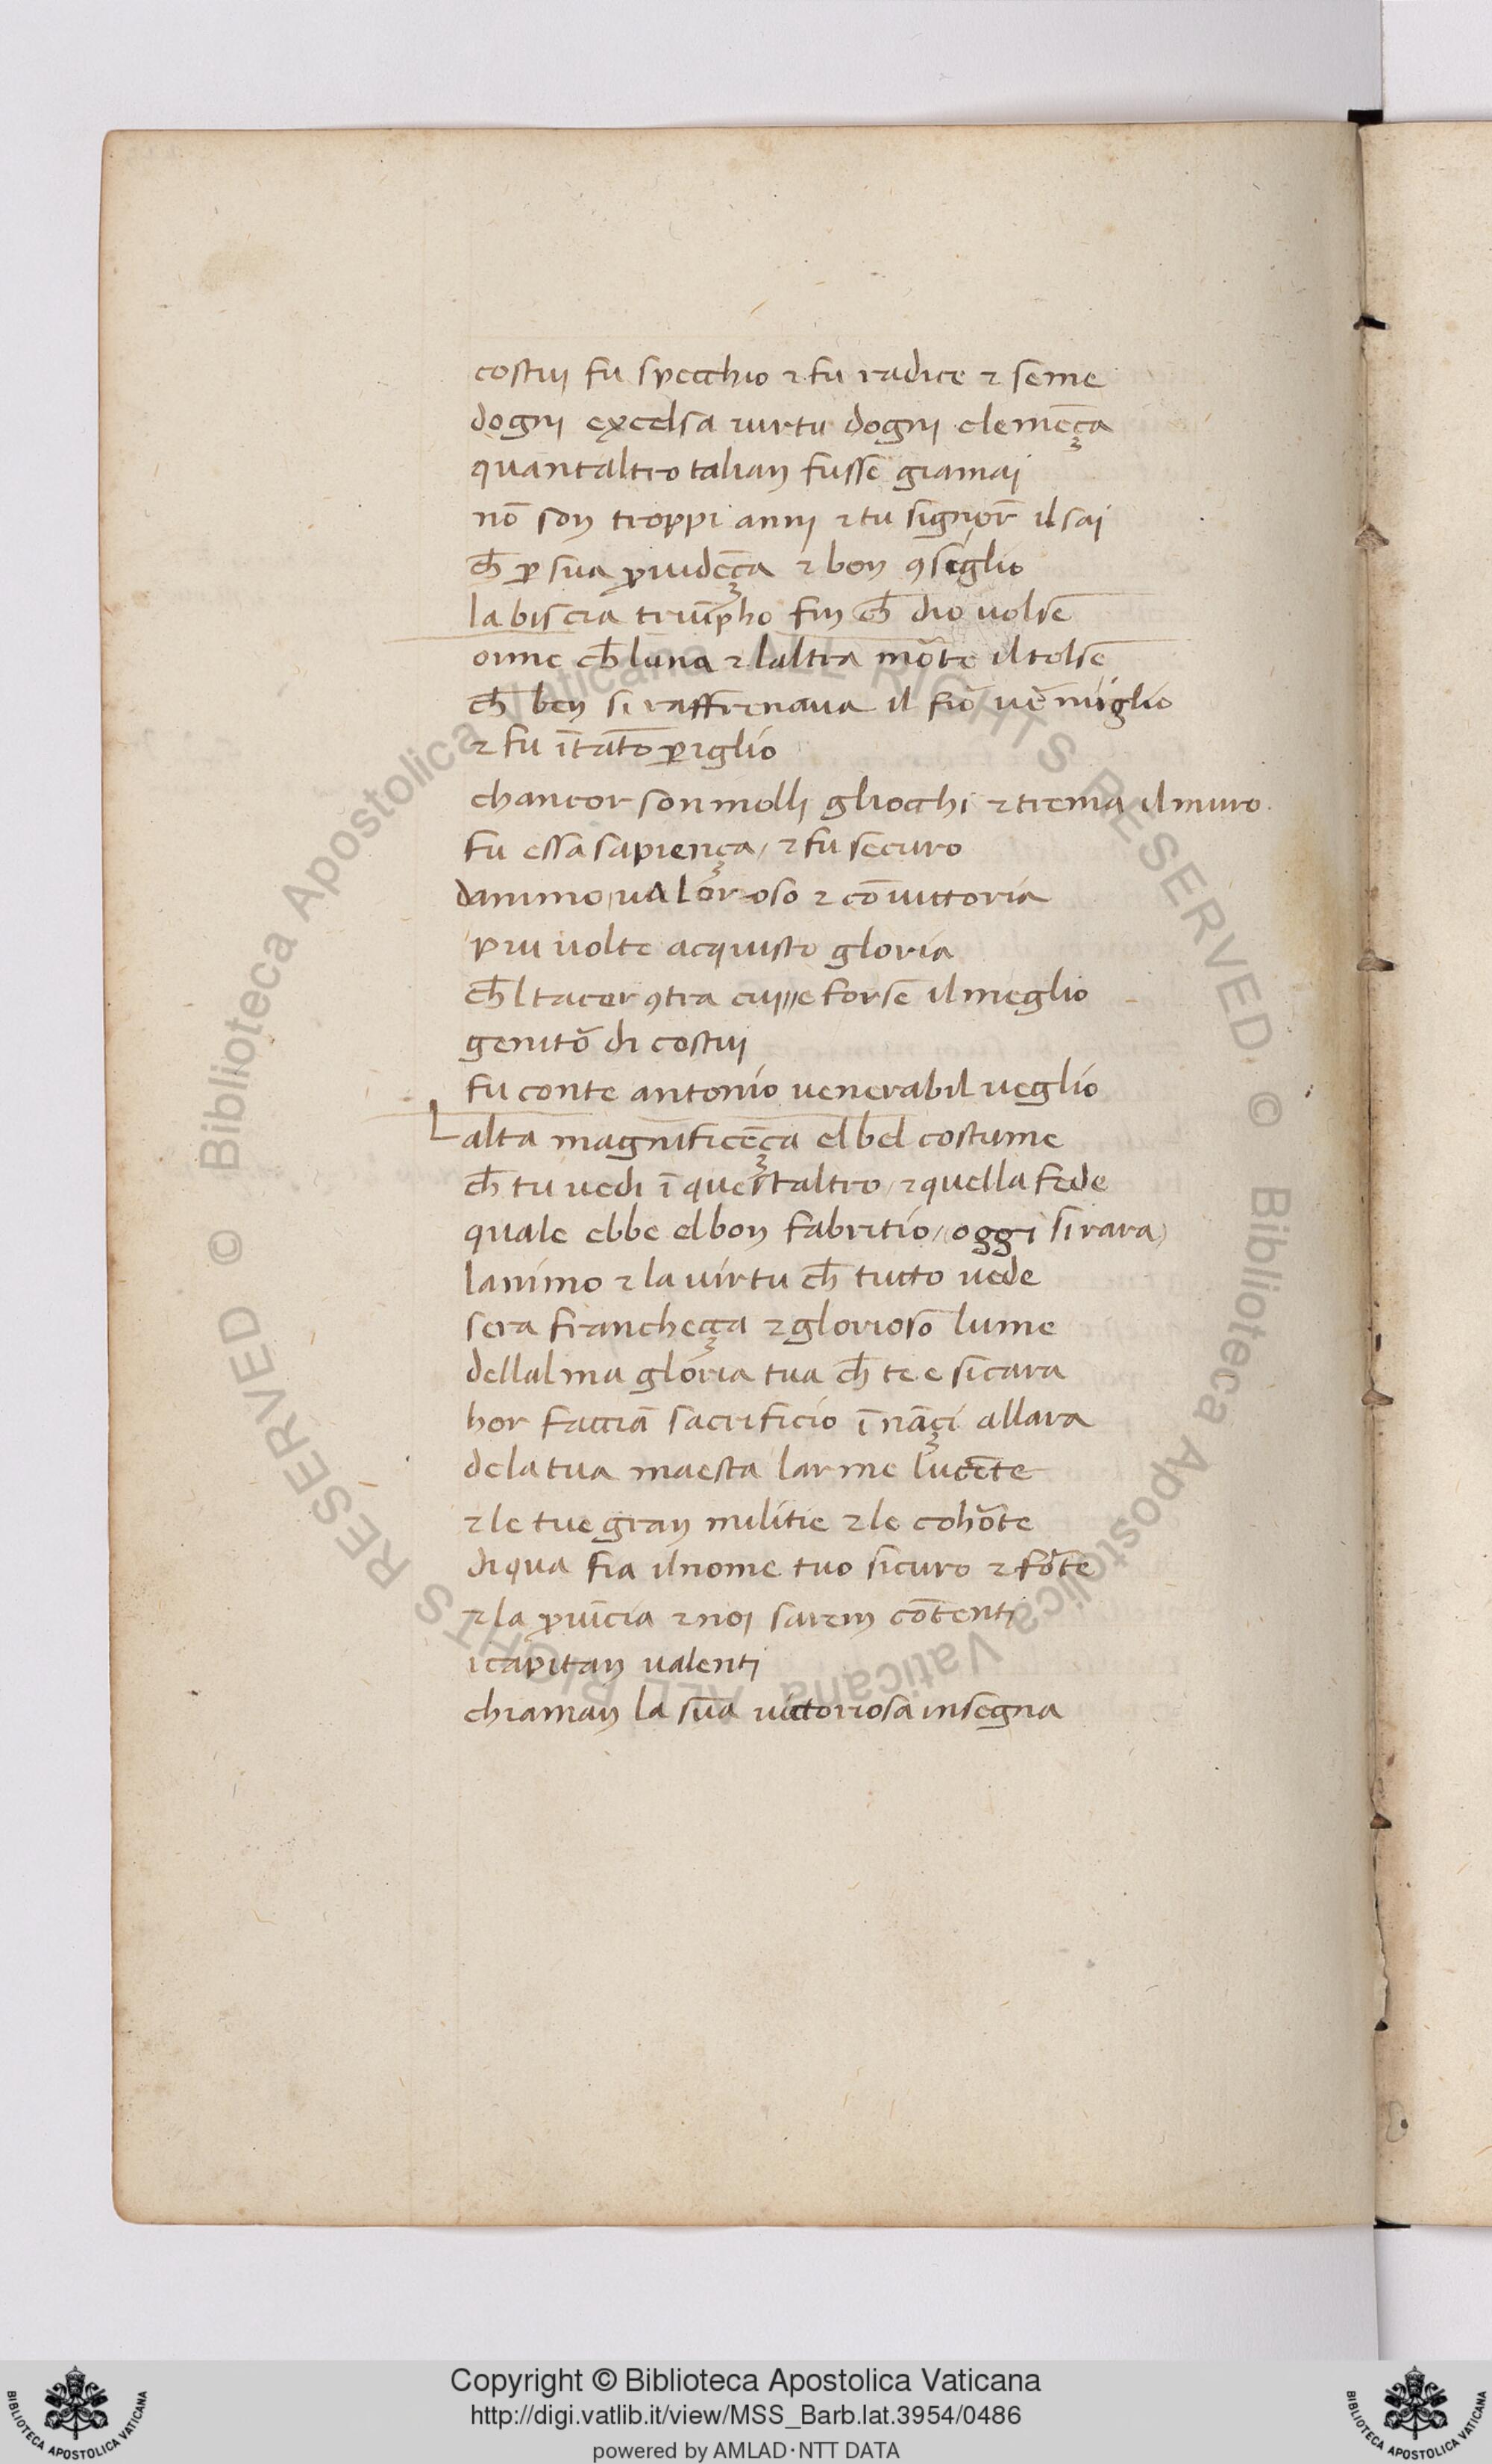 costuj fu specchio ⁊ fu radice ⁊ seme
dognj excelsa uirtu dognj clemēça
quantaltro talian fusse giamaj
nō son troppi annj ⁊ tu signor̄ il saj
ch̄ ꝑ sua ꝓuidēça ⁊ bon ꝯsiglio
la biscia triūpho fin ch̄ dio uolse
oime ch̄ luna ⁊ laltra mōte il tolse
ch̄ ben si raffrenaua il fio uēmiglio
⁊ fu ī tāto ꝑiglio
chancor son mollj gliocchi ⁊ trema il muro
fu essa sapiença / ⁊ fu securo
danimo ualoroso ⁊ cō uittoria
piu uolte acquisto gloria
ch̄l tacer ꝯtra cuj e forse il meglio
genitō di costuj
fu conte antonio venerabil veglio
Lalta magnificēça el bel costume
ch̄ tu uedi ī questaltro / ⁊ quella fede
quale ebbe el bon fabritio / (oggi si rara)
lanimo ⁊ la uirtu ch̄ tutto uede
sera francheça ⁊ glorioso lume
dellalma gloria tua ch̄ te e si cara
hor facciā sacrificio īnāçi allara
de la tua maesta larme lucēte
⁊ le tue gran militie ⁊ le cohōte
di qua fia il nome tuo sicuro ⁊ fōte
⁊ la ꝓuīcia ⁊ noj sarem cōtentj
i capitan valentj
chiaman la sua uictoriosa insegna
Copyright © Biblioteca Apostolica Vaticana
http://digi.vatlib.it/view/MSS_Barb.lat.3954/0486
powered by AMLAD·NTT DATA
BIBLIOTECA APOSTOLICA VATICANA
BIBLIOTECA APOSTOLICA VATICANA
© Biblioteca Apostolica Vaticana ALL RIGHTS RESERVED © Biblioteca Apostolica Vaticana ALL RIGHTS RESERVED